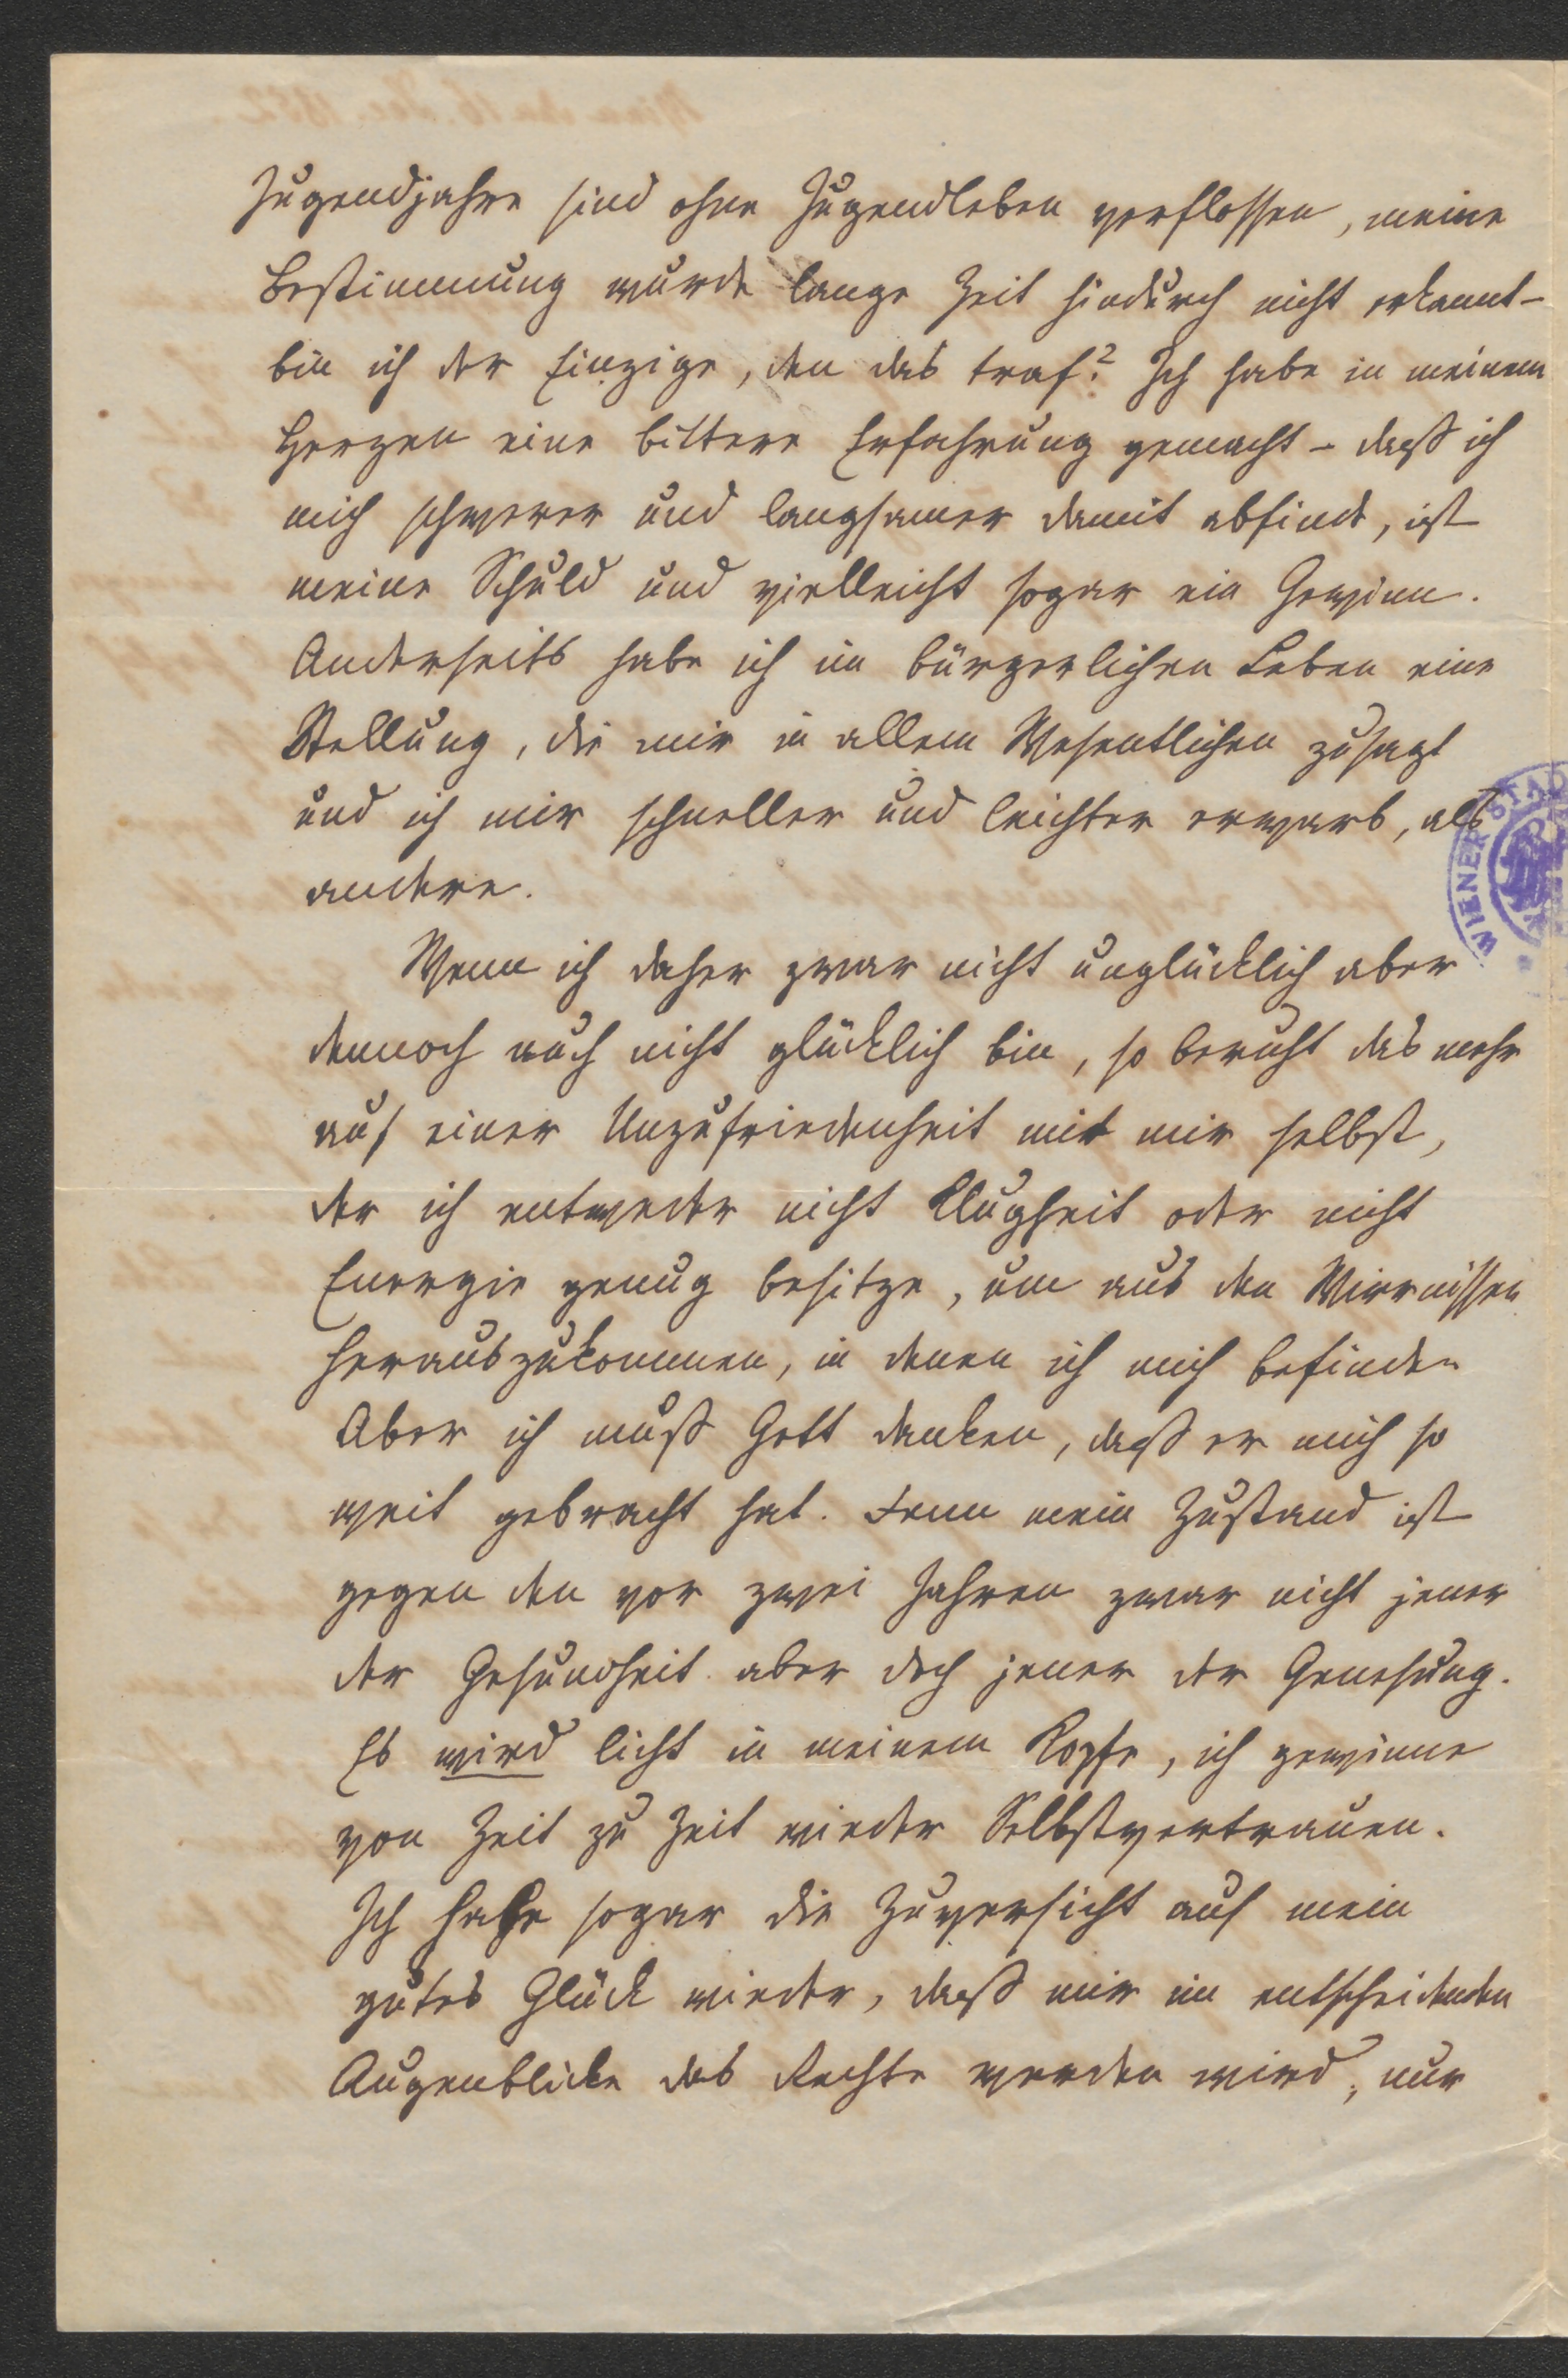 Jugendjahre sind ohne Jugendleben verflossen, meine
Bestimmung wurde lange Zeit hindurch nicht erkannt –
bin ich der Einzige, den das traf? Ich habe in meinem
Herzen eine bittere Erfahrung gemacht – daß ich
mich schwerer und langsamer damit abfinde, ist
meine Schuld und vielleicht sogar ein Gewinn.
Anderseits habe ich im bürgerlichen Leben eine
Stellung, die mir in allem Wesentlichen zusagt
und ich mir schneller und leichter erwarb, als
andere.
Wenn ich daher zwar nicht unglücklich aber
dennoch auch nicht glücklich bin, so beruht das mehr
auf einer Unzufriedenheit mit mir selbst,
der ich entweder nicht Klugheit oder nicht
Energie genug besitze, um aus den Wirrnissen
herauszukommen, in denen ich mich befinde.
Aber ich muß Gott danken, daß er mich so
weit gebracht hat. Denn mein Zustand ist
gegen den vor zwei Jahren zwar nicht jener
der Gesundheit aber doch jener der Genesung.
Es wird licht in meinem Kopfe, ich gewinne
von Zeit zu Zeit wieder Selbstvertrauen.
Ich habe sogar die Zuversicht auf mein
gutes Glück wieder, daß mir im entscheidenden
Augenblicke das Rechte werden wird, nur
WIENER STAD